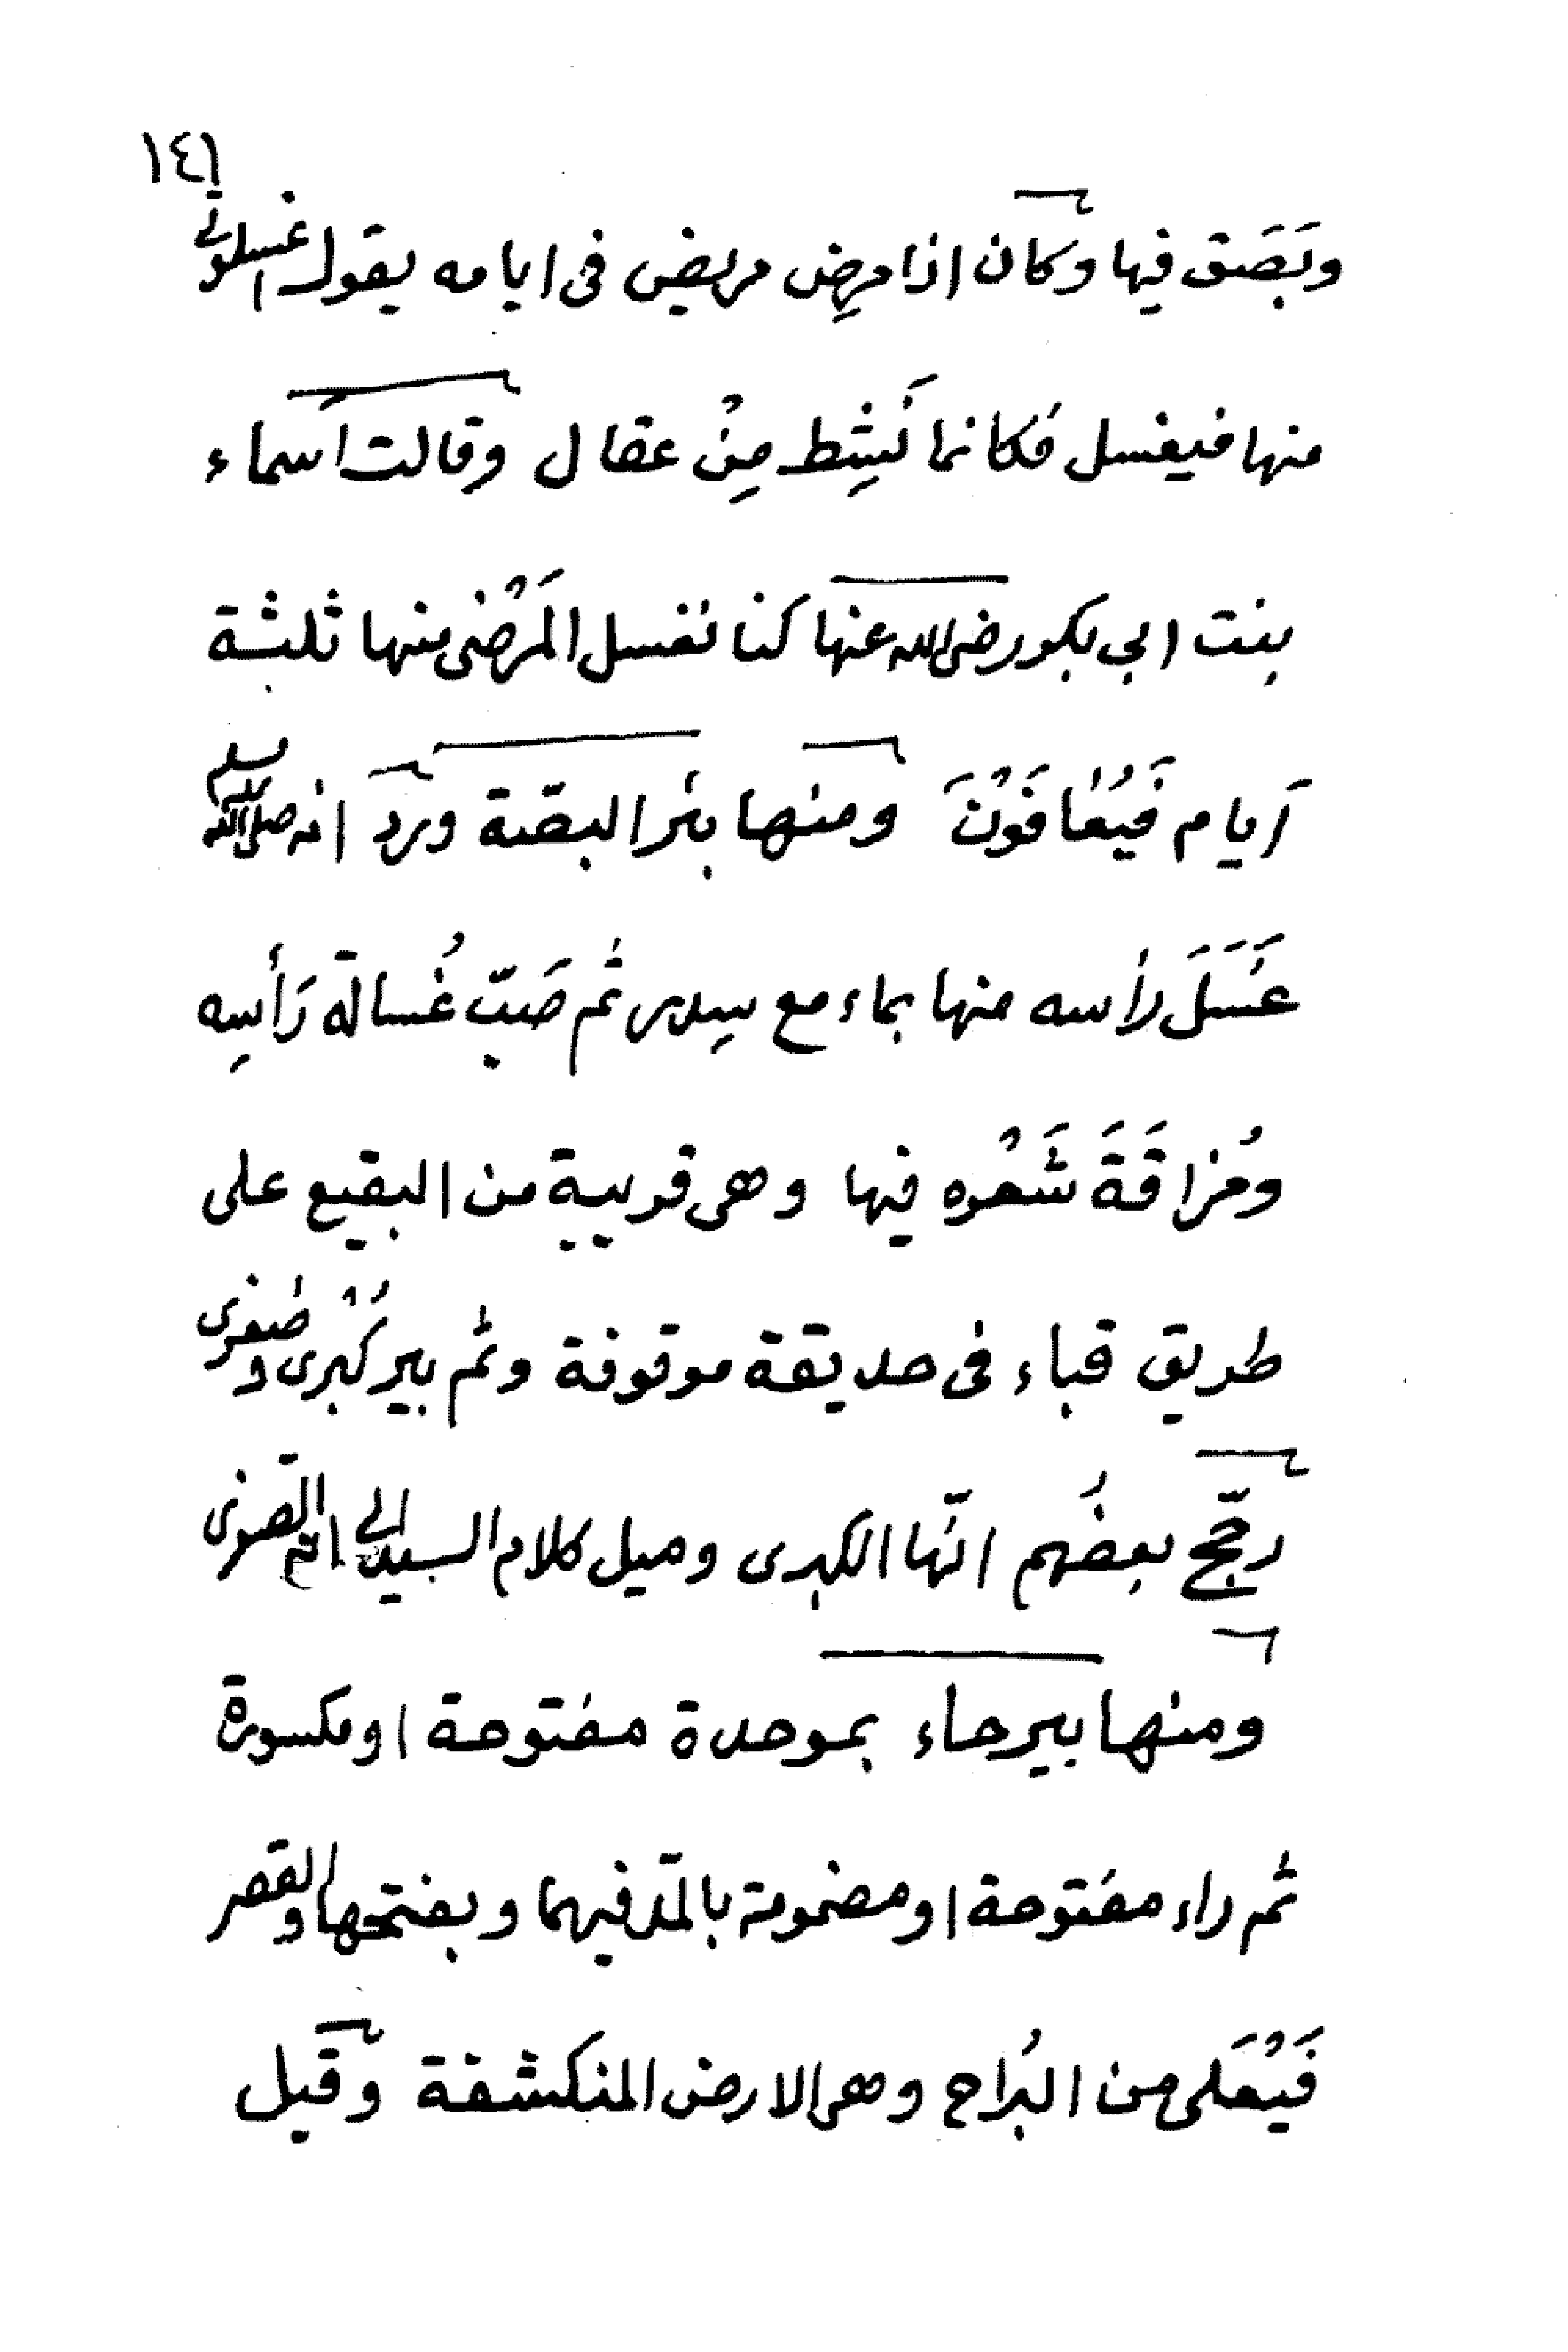 ١٤٦
وبَصَق فيها وكان اذا مرِض مريض فى ايامه يقول اغسلونى
منها فيغسل فكانما نَشِط مِنْ عقال وقالت اَسماء
بنت ابى بكر رضى الله عنها كنا نغسل المَرْضى منها ثلثة
اَيام فَيُعَافَوْنَ ومنها بئر البصّة ورد انه صلى الله عليه وسلم
غَسَلَ رأسه منها بماء مع سِدر ثم صَبّ غُسالة رَأسِه
ومُزاقَةَ شَعْره فيها وهى قريبة من البقيع على
طريق قباء فى حديقة موقوفة وثم بير كُبْرى وصغرى
رجّح بعضُهم انّها الكبرى وميل كلام السيد الى انها الصّغرى
ومنها بيرحاء بموحدة مفتوحة او مكسورة
ثم راء مفتوحة او مضمومة بالمدّ فيهما وبفتحها والقصر
فَيْعَلى من البُراح وهى الارض المنكشفة وقيل